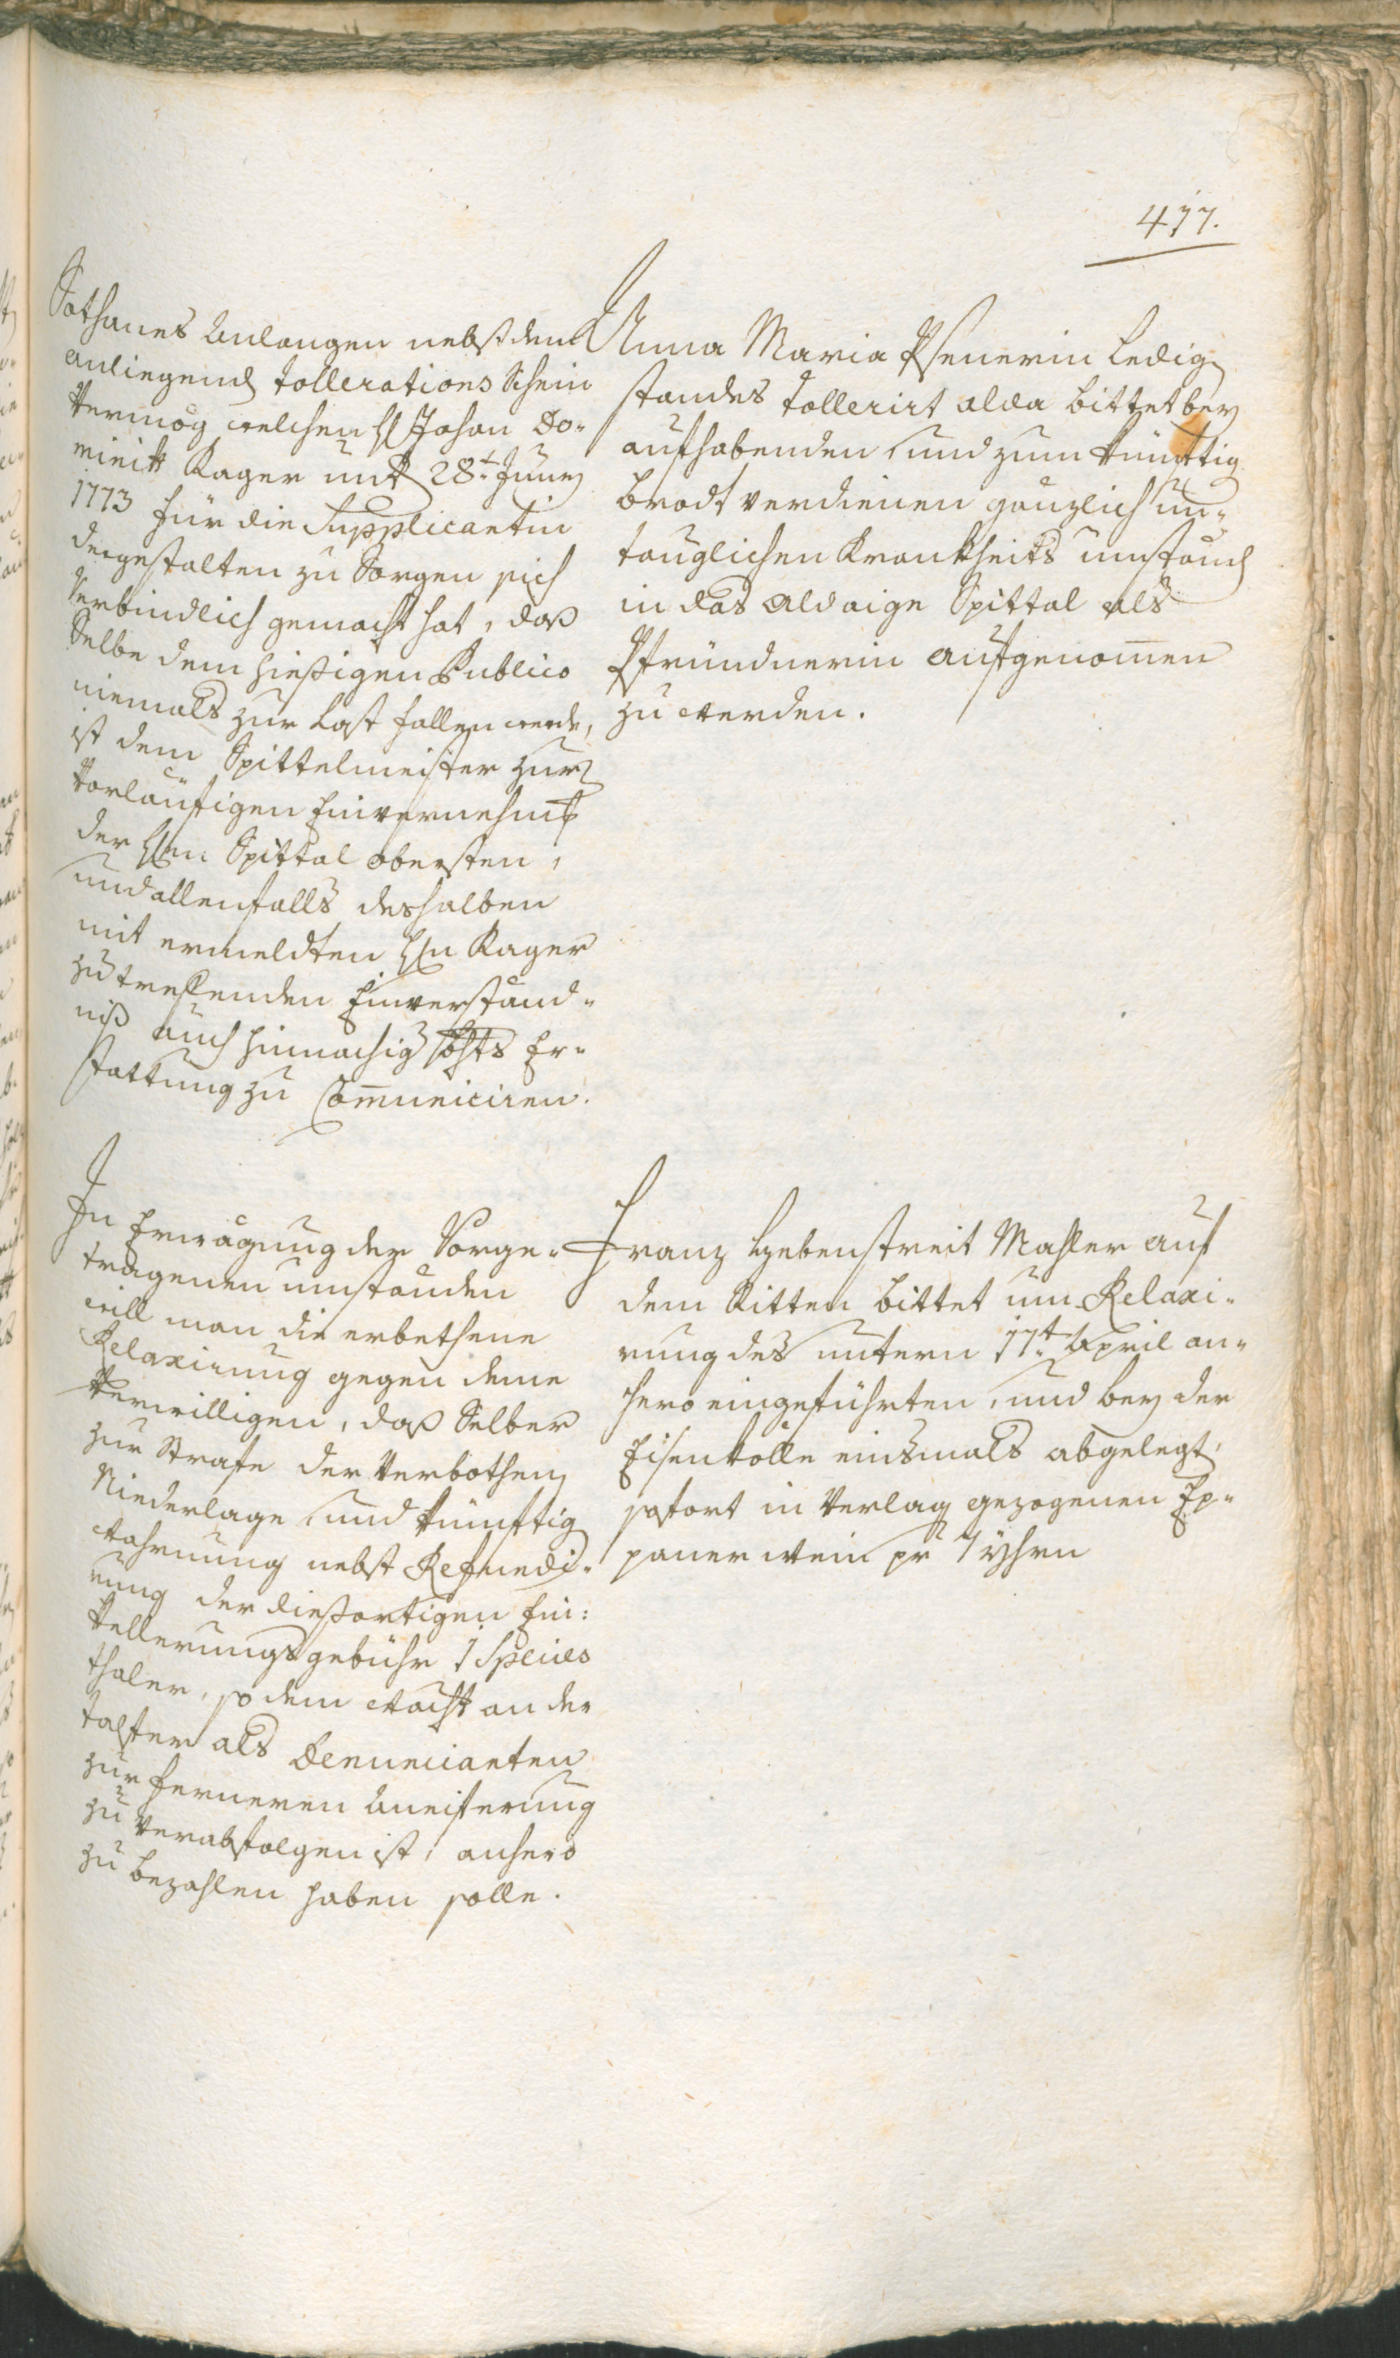 477.
Sothanes Anlangen nebst dem
anliegend Tollerations Schein
Vermög welchen H Johan Do-
minikk Kager untt 28.t Juny
1773 für die Supplicantin
dergestalten zu Sorgen sich
Verbindlich gemacht hat, daß
Selbe dem hießigen Publico
niemals zur Last fallen werde,
ist dem Spittelmeister zur
Vorläufigen Einvernehmg
der Hen Spittal obersten,
und allenfalls deshalben
mit ermeldten Hn Kager
zu treffenden Einverständ-
niß auch hinnachig Er-
stattung zu Communiciren.
Anna Maria Psenerin Ledig
standes Tollerirt alda bittet bey
aufhabenden und zum künftig
Brodt verdienen gänzlich un-
tauglichen Krankheits umständ
in das aldaige Spittal als
Pfründnerin aufgenommen
zu werden.
In Erwägung der Vorge-
tragenen umständen
will man die erbethene
Relaxirung gegen deme
Verwilligen, daß Selber
zur Strafe der Verbothen
Niederlage und künftig
wahrnung nebst Refundi-
rung der dießortigen Ein:
kellerungs gebühr 1 Species
thaler, so dem wacht an der
talfer als Denuncianten
zur ferneren Aneiferung
zu Verabfolgen ist, anhero
zu bezahlen haben solle.
Franz Hebenstreit Mahler auf
dem Ritten bittet um Relaxi-
rung des untern 17.t April an-
hero eingeführten, und bey der
Eisenkölle einsmals abgelegt,
sofort in Verlag gezogenen Ep-
paner wein pr 7 yhrn